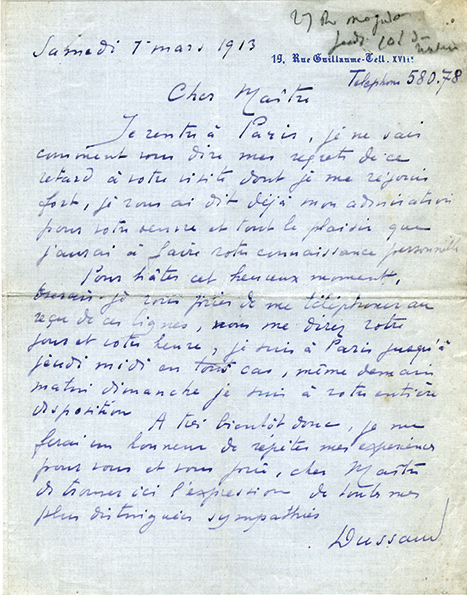 27 Rue
jeudi 10h
Samedi 1er mars 1913
19, Rue Guillaume-Tell. XVIIe
Telephone 580.78
Cher Maître
Je rentre à Paris, je ne sais
comment vous dire mes regrets de ce
retard à votre visite dont je me réjouis
fort, je vous ai dit déjà mon admiration
pour votre oeuvre et tout le plaisir que
j'aurai à faire votre connaissance personnelle
Pour hâter cet heureux moment,
je vous prier de me téléphoner au
reçu de ces lignes, vous me direz votre
jour et votre heure, je suis à Paris jusqu'à
jeudi midi en tout cas, même demain
matin dimanche je suis à votre entière
disposition
A très bientôt donc, je me
ferai un honneur de répéter mes expériences
pour vous et vous prie, cher Maître
de trouver ici l'expression de toutes mes
plus distinguées sympathies
Dussaud